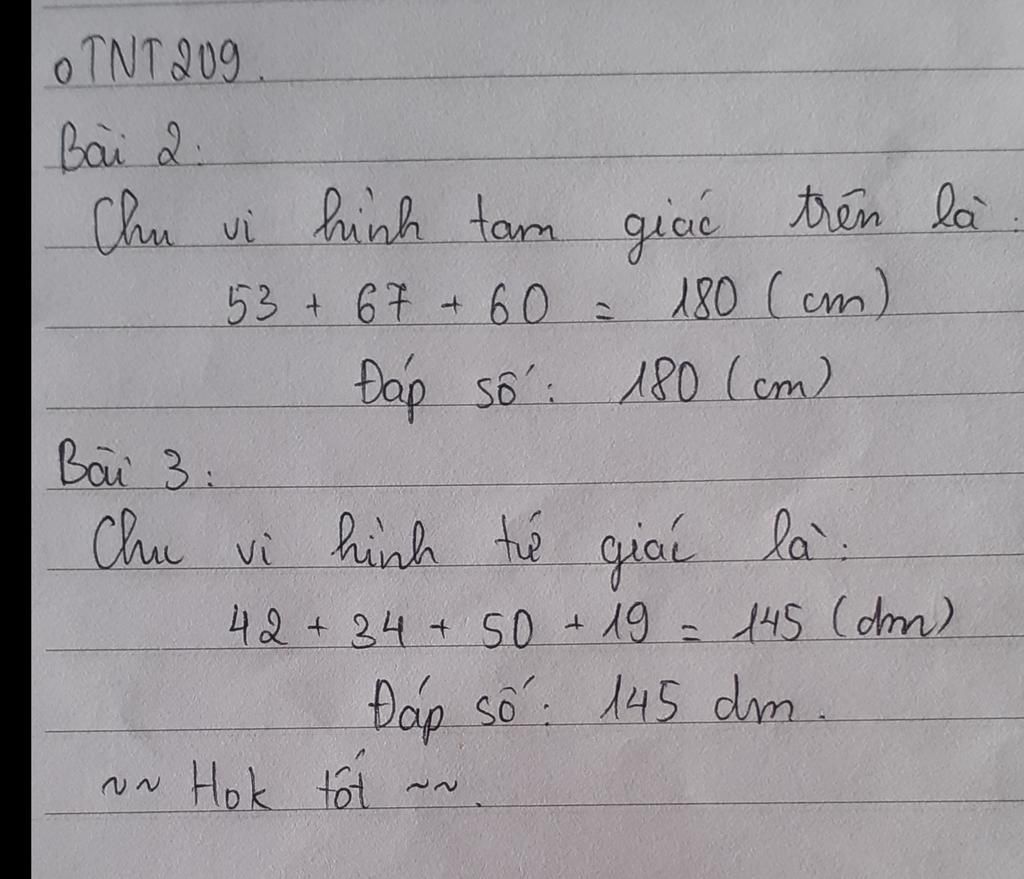 oTNT209.
Bài 2:
Chu vi hình tam giác trên là:
53 + 67 + 60 = 180 (cm)
Đáp số: 180 (cm)
Bài 3:
Chu vi hình tứ giác là:
42 + 34 + 50 + 19 = 145 (dm)
Đáp số: 145 dm.
~~ Hok tốt ~~.